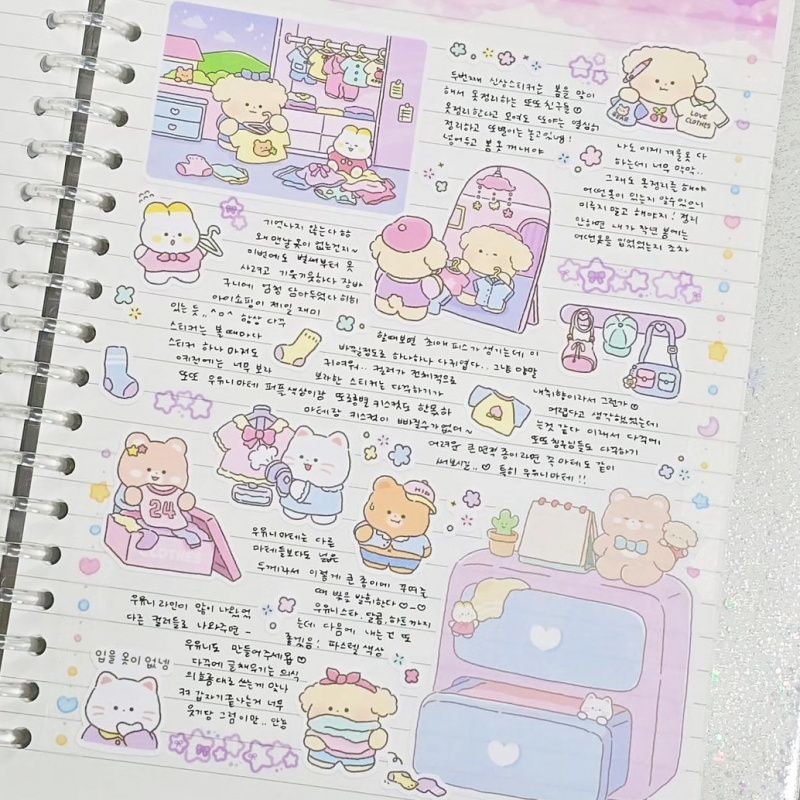 두번째 신상스티커는 봄을 맞이
해서 옷정리하는 또또친구들
옷정리한다고 모여도 또야는 열심히
정리하고 또뱅이는 놀고있넹!
넣어두고 봄옷 꺼내야
BEAR
LOVE
CLOTHES
나도 이제 겨울옷 다
하는데 너무 막막..
그래도 옷정리를 해야
어떤옷이 있는지 알수있으니
미루지 말고 해야지! 정리
안하면 내가 작년 봄에는
어떤옷을 입었었는지 조차
기억나지 않는다
왜 맨날 옷이 없는건지~
이번에도 벌써부터 옷
사려고 기웃기웃하다 장바
구니에 엄청 담아두었다 히히
아이쇼핑이 제일 재미
있는 듯,, ^o^ 항상 다꾸
스티커는 볼 때마다
스티커 하나 마저도
예전에는 너무 보라
또또 우유니마테 퍼플색상이랑
할때보면 최애 피스가 생기는데 이
바뀔정도로 하나하나 다귀엽다.. 그냥 냅
귀여워.. 컬러가 전체적으로
보라한 스티커는 다꾸하기가
또롱별 키스컷도 한몫하
마테랑 키스컷이 빠질수가없어~
내취향이라서 그런가
어렵다고 생각했었는데
는것 같다 이래서 다꾸에
또또친구님들도 다꾸하기
어려운 큰 면적 종이라면 꼭 마테도 같이
써보시길.. 특히 우유니마테!!
24
CLOTHES
우유니마테는 다른
마테들보다도 넓은
두께라서 이렇게 큰 종이에 꾸며줄
때 빛을 발휘한다 ♡-♡
우유니 라인이 많이 나왔었
우유니스타, 달콤, 하트까지
다른 컬러들로 나와주면 -
는데 다음에 내는건 또
좋겠음! 파스텔 색상
우유니도 만들어주세욥
다꾸에 글채우기는 의식
의흐름대로 쓰는게 맞나
갑자기 끝나는거 너무
웃기당 그럼이만.. 안농
입을 옷이 없넹